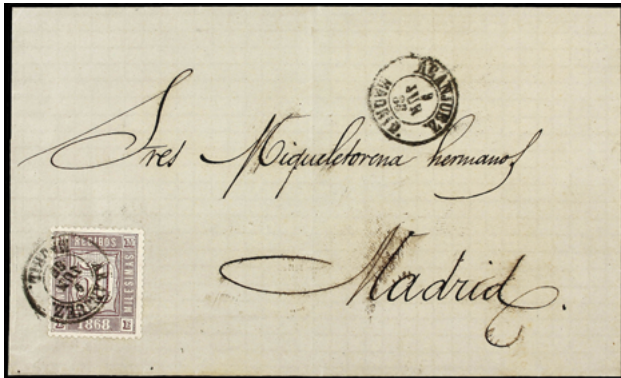 ARANJUEZ
JUN
MADRID
Sres Miqueletorena hermanos
Madrid.
RECIBOS
MILESIMAS
1868
ARANJUEZ